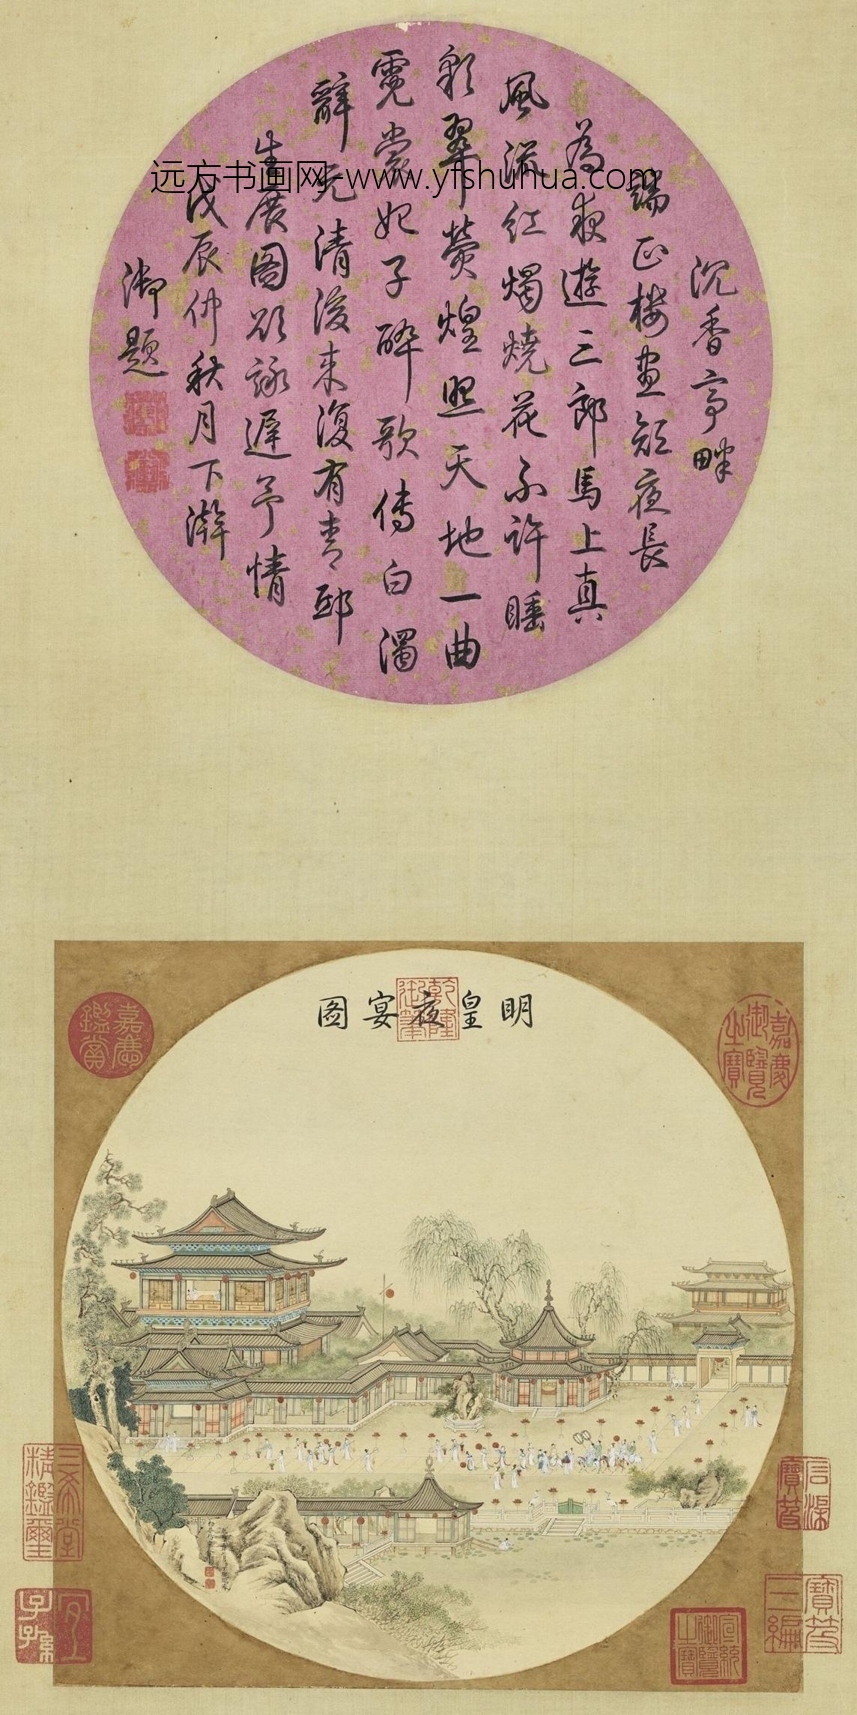 远方书画网-www.yfshuhua.com
沉香亭畔
端正樓晝短夜長
為夜遊三郎馬上真
風流紅燭燒花不許睡
彩翠熒煌照天地一曲
霓裳妃子醉歌傳白濁
辭元清後來復有青邱
生展圖欲詠遲予情
戊辰仲秋月下澣
御題
明皇夜宴圖
乾隆御筆
嘉慶御覽之寶
嘉慶鑑賞
三希堂精鑑璽
宜子孫
寶笈三編
宣統御覽之寶